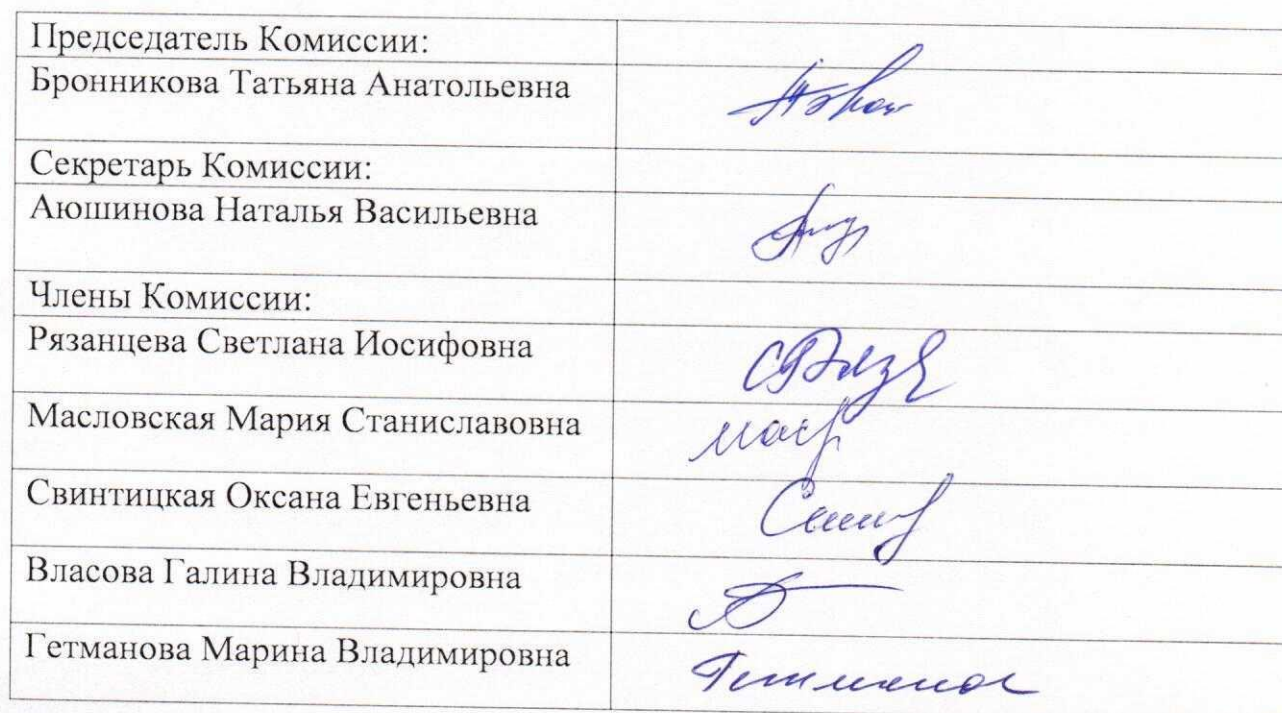 Председатель Комиссии:
Бронникова Татьяна Анатольевна
Секретарь Комиссии:
Аюшинова Наталья Васильевна
Члены Комиссии:
Рязанцева Светлана Иосифовна
Масловская Мария Станиславовна
Свинтицкая Оксана Евгеньевна
Власова Галина Владимировна
Гетманова Марина Владимировна